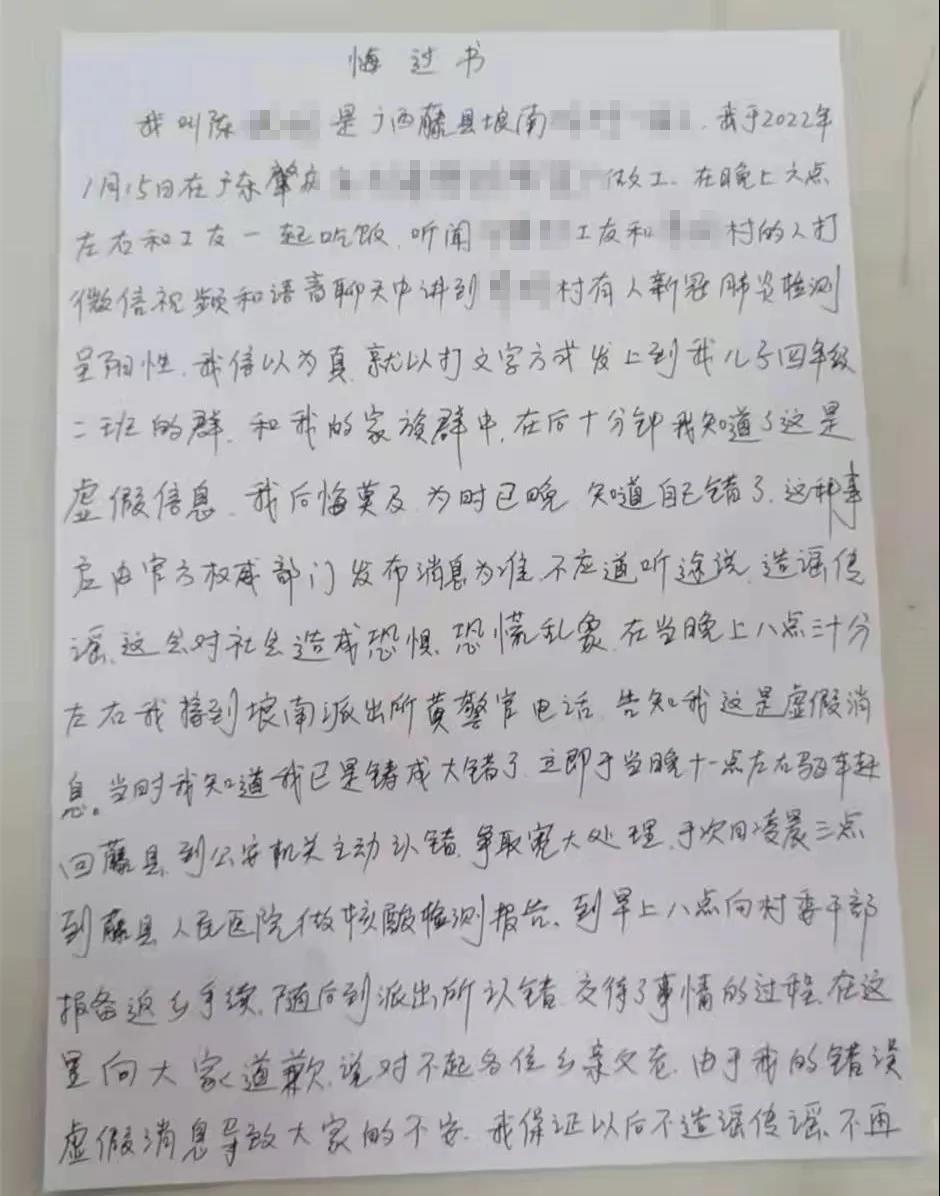 悔过书
我叫陈 是广西藤县埌南 ,我于2022年
1月15日在广东肇庆 做工、在晚上六点
左右和工友一起吃饭,听闻 工友和 村的人打
微信视频和语音聊天中讲到 村有人新冠肺炎检测
呈阳性,我信以为真,就以打文字方式发上到我儿子四年级
二班的群,和我的家族群中,在后十分钟我知道了这是
虚假信息,我后悔莫及,为时已晚,知道自己错了,这种事
应由官方权威部门发布消息为准,不应道听途说,造谣传
谣,这会对社会造成恐惧,恐慌乱象,在当晚上八点三十分
左右我接到埌南派出所黄警官电话,告知我这是虚假消
息。当时我知道我已是铸成大错了,立即于当晚十一点左右驱车赶
回藤县,到公安机关主动认错,争取宽大处理,于次日凌晨三点
到藤县人民医院做核酸检测报告、到早上八点向村委干部
报备返乡手续,随后到派出所认错,交待了事情的过程,在这
里向大家道歉,说对不起各位乡亲父老,由于我的错误
虚假消息导致大家的不安,我保证以后不造谣传谣、不再